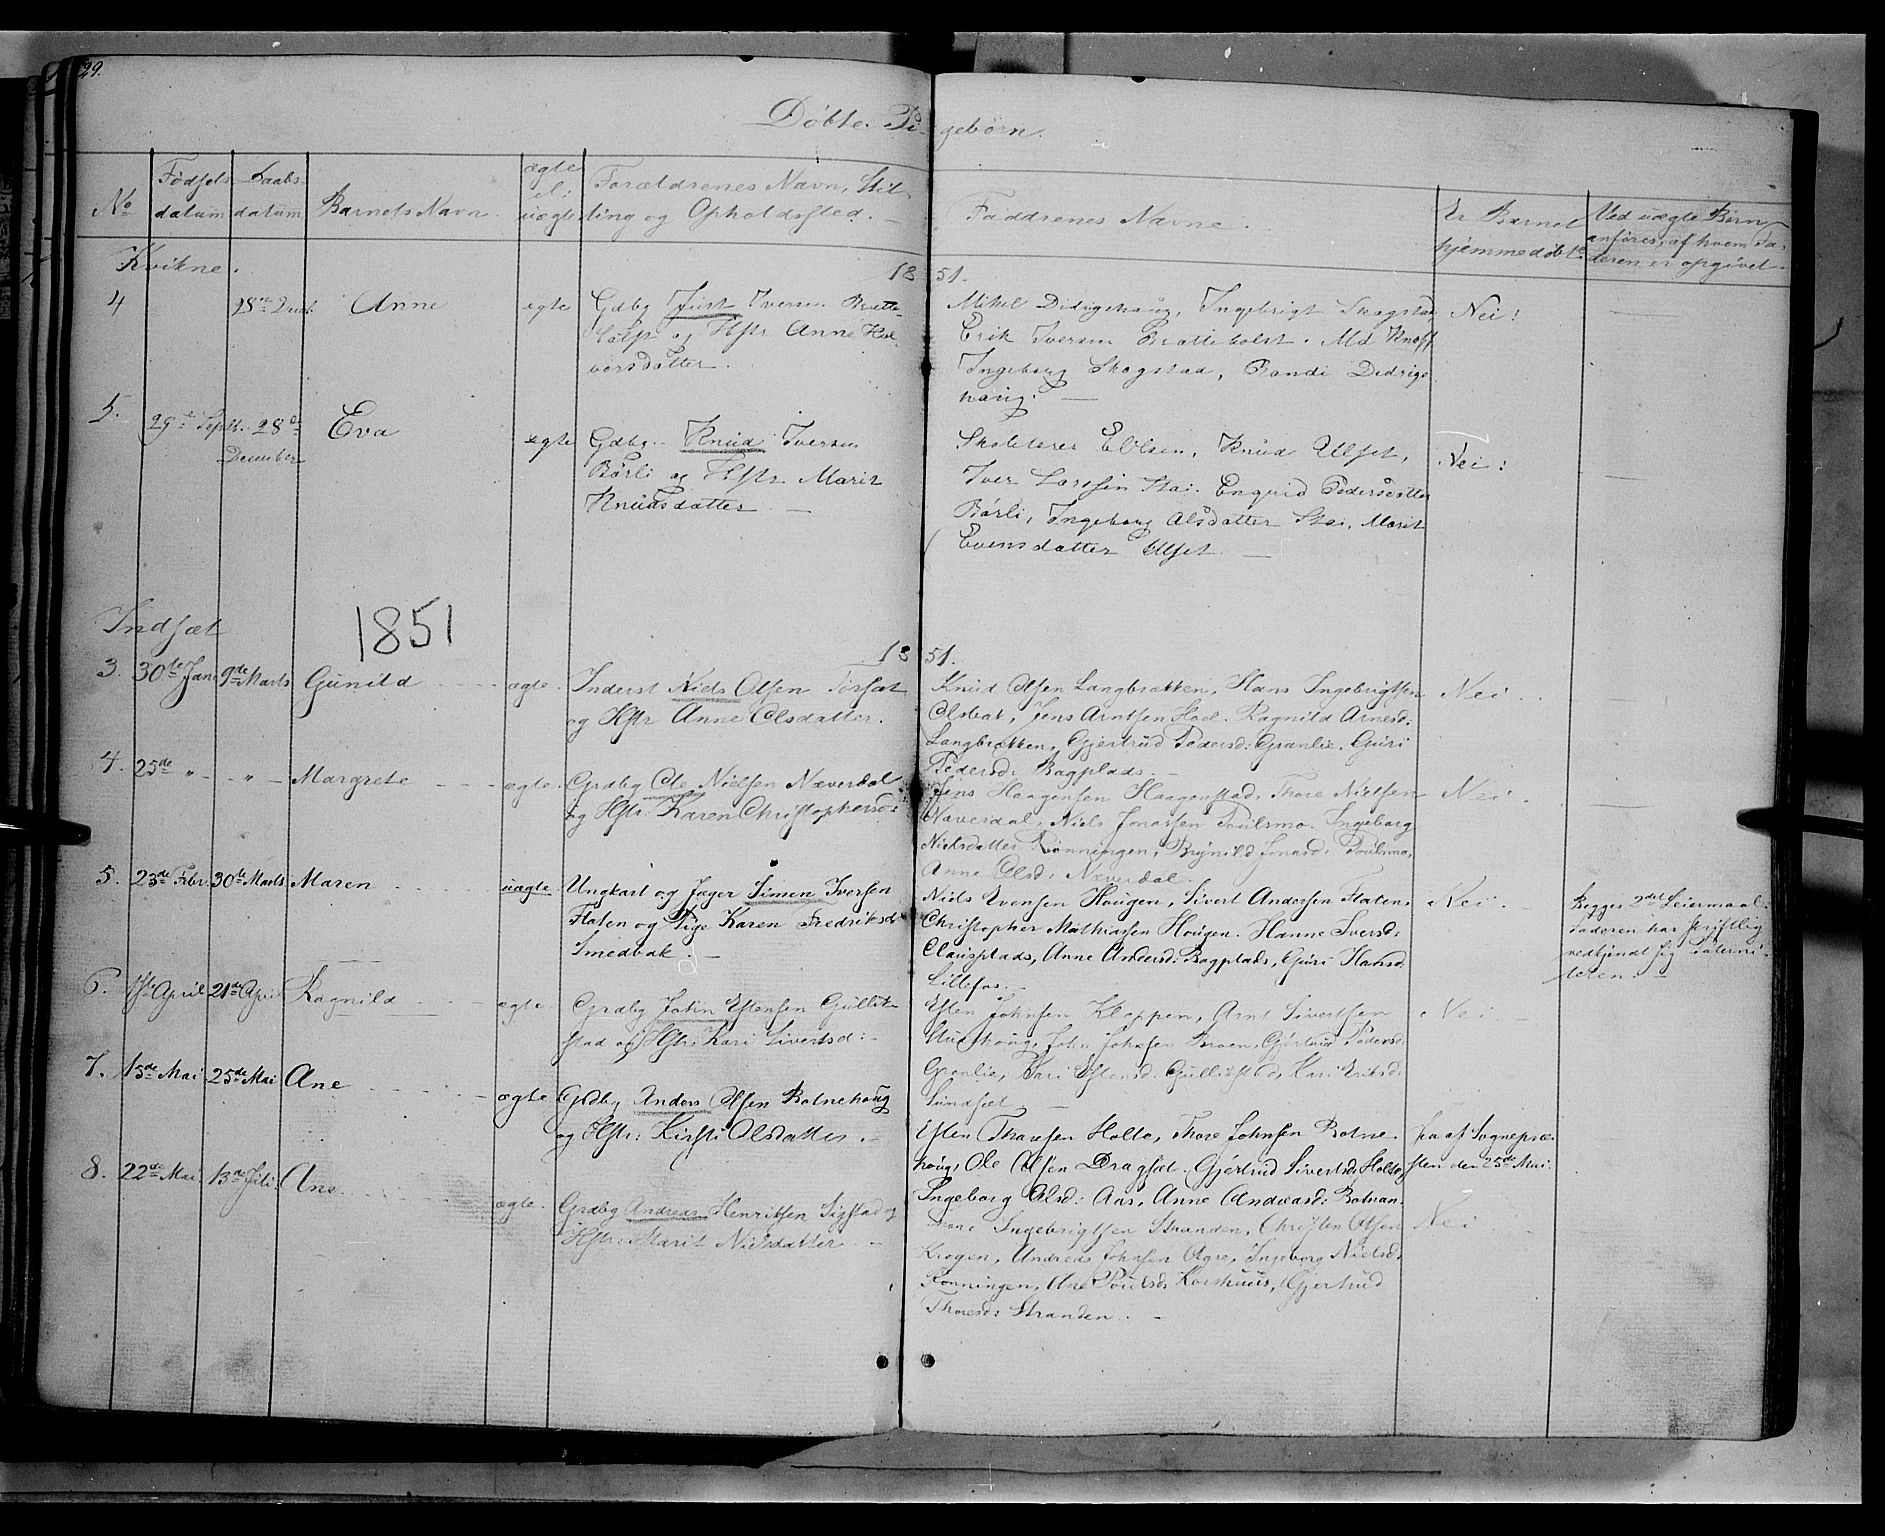 29.
Døbte Pigebørn.
No Fødsels datum Daabs datum Barnets Navn. ægte el. uægte Forældrenes Navn, Stilling og Opholdssted. Faddrenes Navne. Er Barnet hjemmedøbt. Ved uægte Børn anføres, af hvem Faderen er opgivet.
Kvikne. 1851.
4 28de Decb. Anne egte Gdbg Just Iversen Bratte-
holst og Hstr Anne Hal-
vorsdatter.
Mikel Didrigshaug, Ingebrigt Skogstad,
Erik Iversen Bratteholst. Md Knoff
Ingeborg Skogstad, Randi Dedrigs
haug. —
Nei:
5. 29de Septb. 28de December Eva egte Gdbg. Knud Iversen
Børli og Hstr. Marit
Knudsdatter. —
Skolelærer Ebsen, Knud Ulset,
Iver Larssen Stai. Engrid Pedersdtter
Børli, Ingeborg Olsdatter Stai, Marit
Evensdatter Ulset. —
Nei:
Indset 1851
1851.
3. 30te Jan 9de Marts Gunild ægte. Inderst Niels Olsen Torset
og Hstr Anne Olsdatter.
Knud Olsen Langbrækken, Hans Ingebrigtsen
Olsbak, Jens Arntsen Hoel. Ragnild Arnesd:
Langbrækken, Gjertrud Pedersd: Granlie, Guri
Pedersd: Bagplads. —
Nei.
4. 25de " — " — Margrete ægte. Grdbg Ole Nielsen Næverdal
og Hstr: Karen Christophersd:
Jens Haagensen Haagenstad, Thore Nielsen
Næverdal, Niels Jonassen Poulsmo. Ingeborg
Nielsdatter Rønningen, Brynild Jonasd: Poulsmo,
Anne Olsd: Næverdal.
Nei.
5. 23de Febr. 30te Marts Maren uægte Ungkarl og Jæger Simen Iversen
Floten og Pige Karen Fredriksd:
Smedbak. —
Niels Evensen Hougen, Sivert Andersen Floten,
Christopher Mathiassen Hougen. Hanne Iversd:
Clausplads, Anne Andersd: Bagplads, Guri Hansd:
Lillefos. —
Nei.
Begges 2det Leiermaal.
Faderen har skriftlig
vedkjendt sig Paterni-
teten.
6. April 21de April Ragnild ægte Grdbg John Estensen Gullik-
stad og Hstr: Kari Sivertsd: —
Esten Johnsen Kleppen, Arnt Sivertsen
Stubhoug, John Johnsen Broen, Gjertrud Pedersd:
Granlie, Kari Estensd: Gullikstad, Kari Eriksd:
Sundset. —
Nei.
7. 15de Mai 25de Mai Ane ægte Grdbg Anders Olsen Botnehoug
og Hstr: Kirsti Olsdatter. —
Esten Thoresen Holte, Thore Johnsen Botne-
houg, Ole Olsen Dragset. Gjertrud Sivertsd: Holte,
Ingeborg Olsd: Aas, Anne Andreasd: Botnan.
Ja af Sognepræ-
sten den 25de Mai.
8. 22de Mai 13de Juli. Ane ægte. Grdbg Andreas Henriksen Sigstad og
Hstr: Marit Nielsdatter. —
Thore Ingebrigtsen Stranden, Christen Olsen
Krogen, Andreas Johnsen Agre, Ingeborg Nielsd:
Rønningen, Ane Poulsd: Korshuus, Gjertrud
Thoresd: Stranden. —
Nei